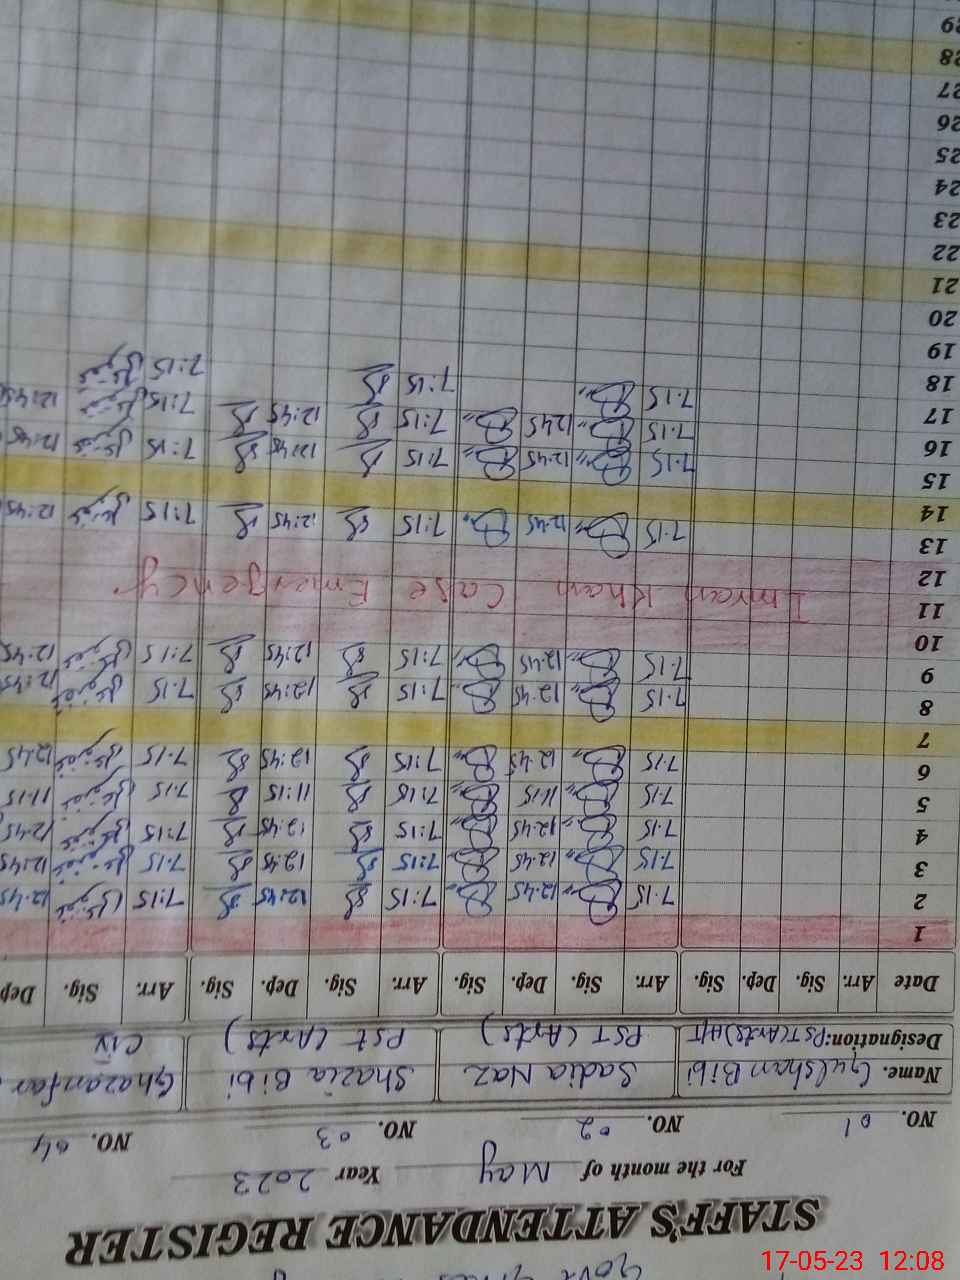 Govt Girls
STAFF'S ATTENDANCE REGISTER
For the month of May Year 2023
NO. 01 NO. 02 NO. 03 NO. 04
Name. Gulshan Bibi Sadia Naz Shazia Bibi Ghazanfar
Designation: PST (Arts) H/T PST (Arts) Pst (Arts) CIV
Date Arr. Sig. Dep. Sig. Arr. Sig. Dep. Sig. Arr. Sig. Dep. Sig. Arr. Sig. Dep
1
2 7:15 12:45 7:15 12:45 7:15 12:45
3 7:15 12:45 7:15 12:45 7:15 12:45
4 7:15 12:45 7:15 12:45 7:15 12:45
5 7:15 11:15 7:15 11:15 7:15 11:15
6 7:15 12:45 7:15 12:45 7:15 12:45
7
8 7:15 12:45 7:15 12:45 7:15 12:45
9 7:15 12:45 7:15 12:45 7:15 12:45
10
11 Imran Khan Case Emergency
12
13 7:15 12:45 7:15 12:45 7:15 12:45
14
15 7:15 12:45 7:15 12:45 7:15 12:45
16 7:15 12:45 7:15 12:45 7:15 12:45
17 7:15 7:15 7:15
18
19
20
21
22
23
24
25
26
27
28
29
17-05-23 12:08